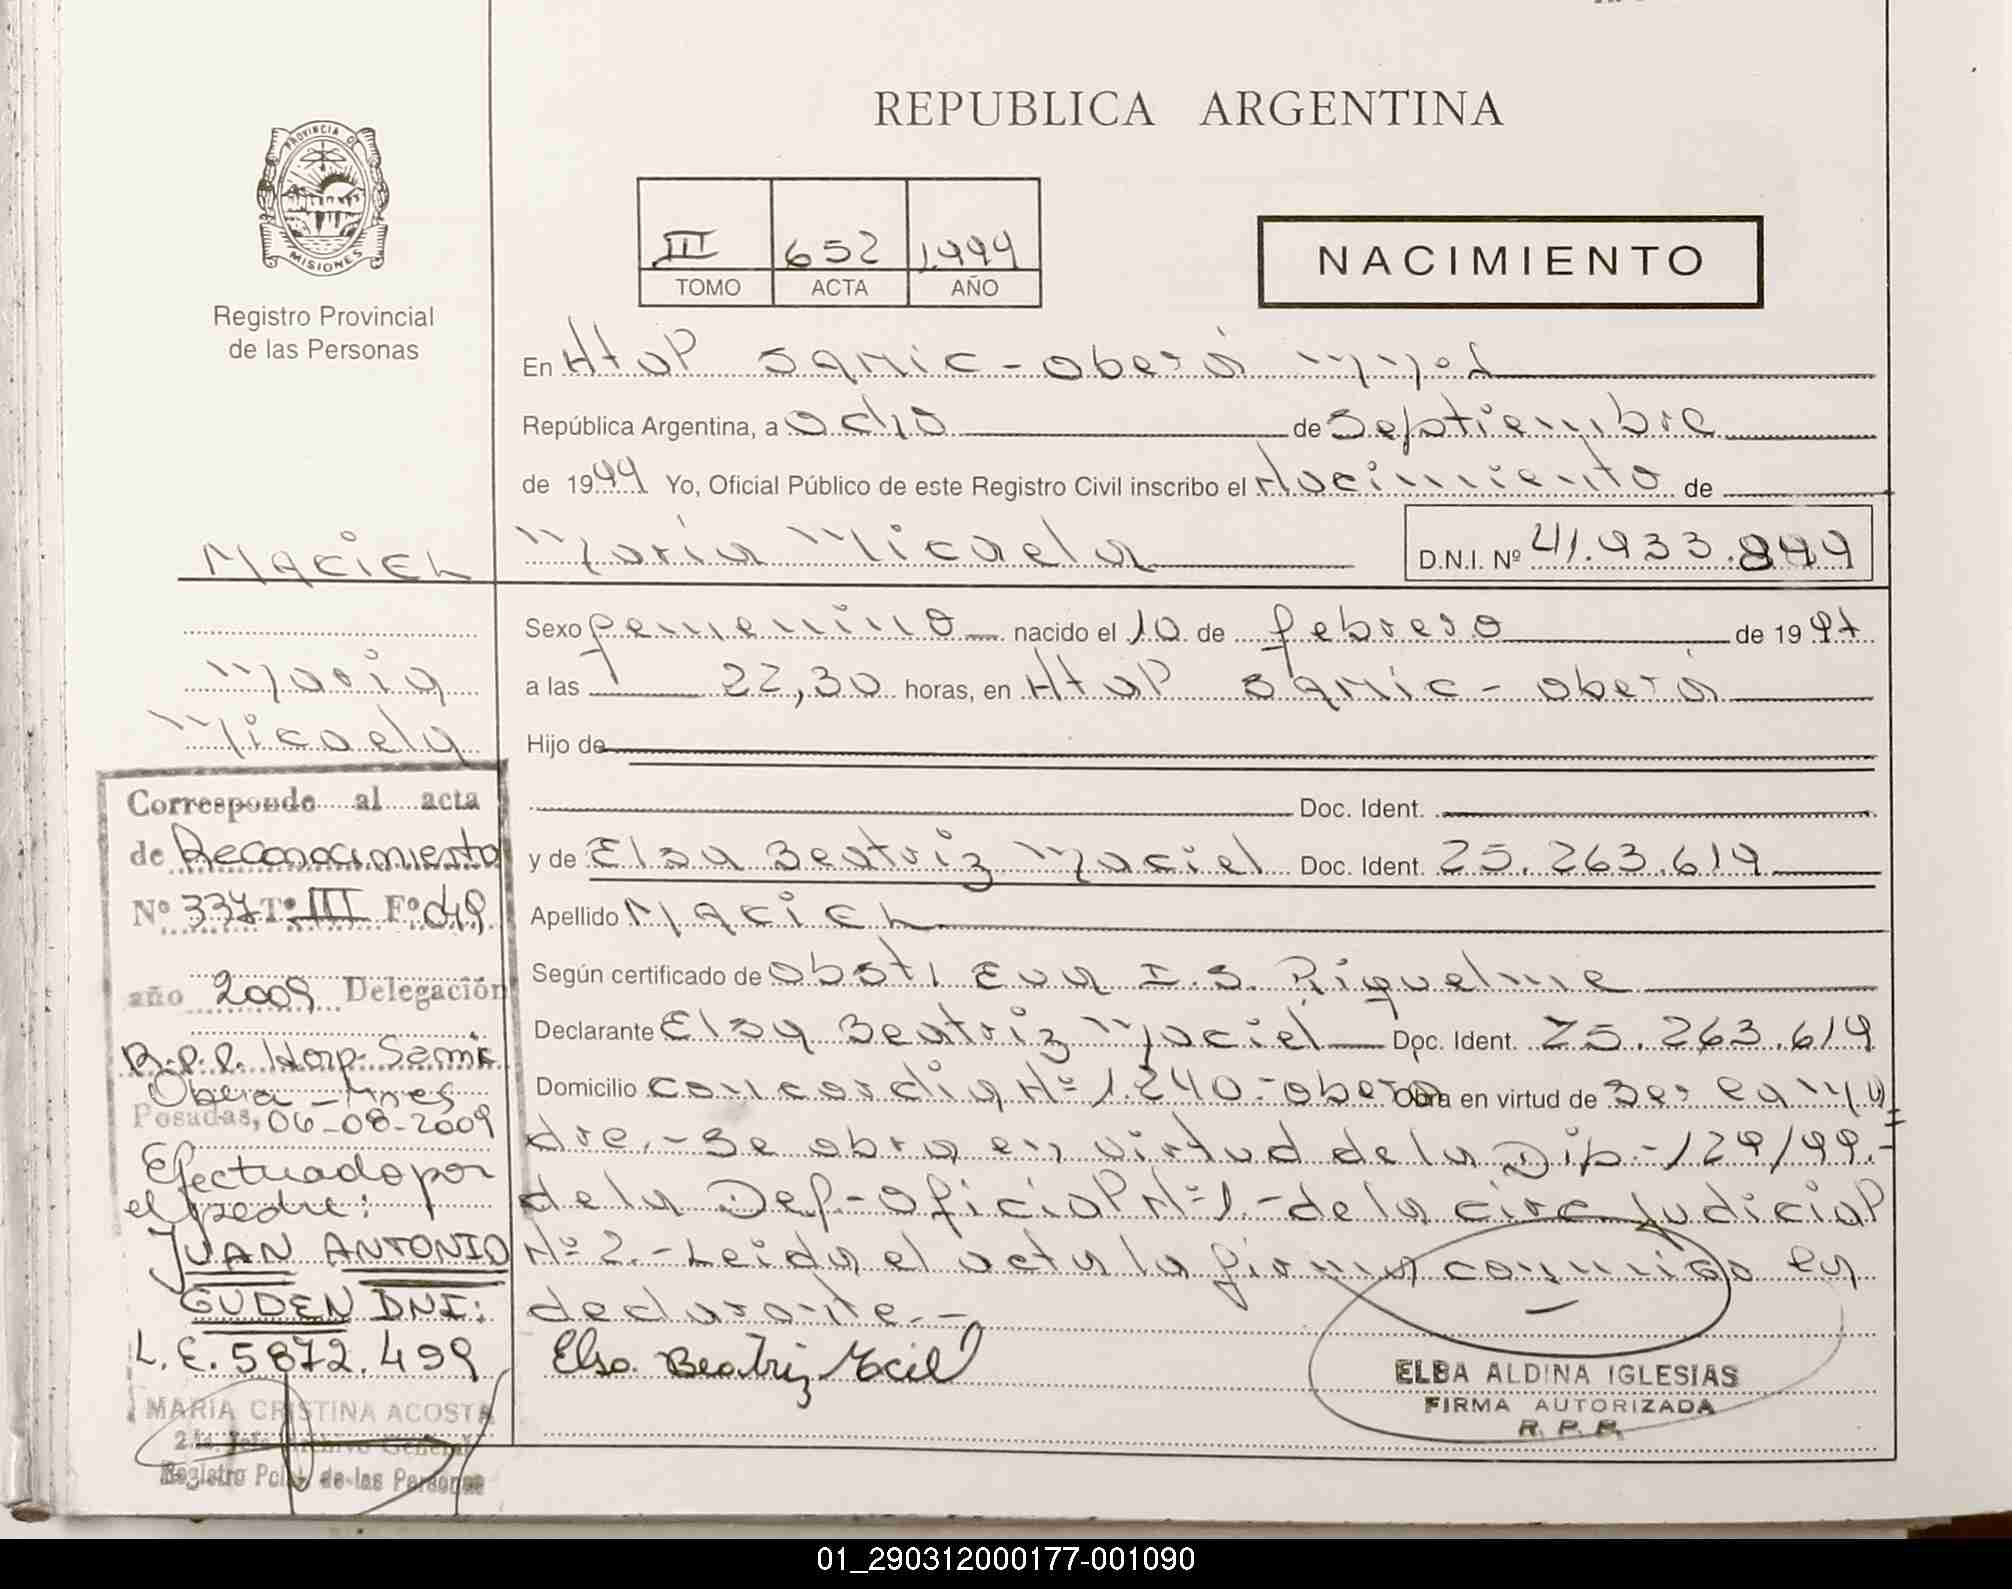 REPUBLICA ARGENTINA
PROVINCIA DE
MISIONES
Registro Provincial
de las Personas
III 652 1999
TOMO ACTA AÑO
NACIMIENTO
En Htal Samic - Oberá Mnes
República Argentina, a ocho de Septiembre
de 1999 Yo, Oficial Público de este Registro Civil inscribo el Nacimiento de
MACIEL
María Micaela
D.N.I. Nº 41.933.899
María
Micaela
Sexo femenino nacido el 10 de febrero de 1997
a las 22,30 horas, en Htal Samic - Oberá
Hijo de
Doc. Ident.
y de Elsa Beatriz Maciel Doc. Ident. 25.263.619
Apellido MACIEL
Según certificado de Obst. Eva I. S. Riquelme
Declarante Elsa Beatriz Maciel Doc. Ident. 25.263.619
Domicilio Concordia Nº 1.240.- Oberá Obra en virtud de Ser la Ma=
dre.- Se obra en virtud de la Dip.- 129/99.-
de la Def.- Oficial Nº 1.- de la circ. Judicial
Nº 2.- Leida el acta la firma conmigo la
declarante.-
Elsa Beatriz Maciel
ELBA ALDINA IGLESIAS
FIRMA AUTORIZADA
R. P. P.
Corresponde al acta
de Reconocimiento
Nº 337 Tº III Fº 049
año 2009 Delegación
R.P.P. Hosp. Samic
Obera - Mnes
Posadas, 06-08-2009
Efectuado por
el padre:
JUAN ANTONIO
GUDEN DNI:
L.E. 5872.499
MARIA CRISTINA ACOSTA
2da. Jefe Archivo General
Registro Pcial. de las Personas
01_290312000177-001090